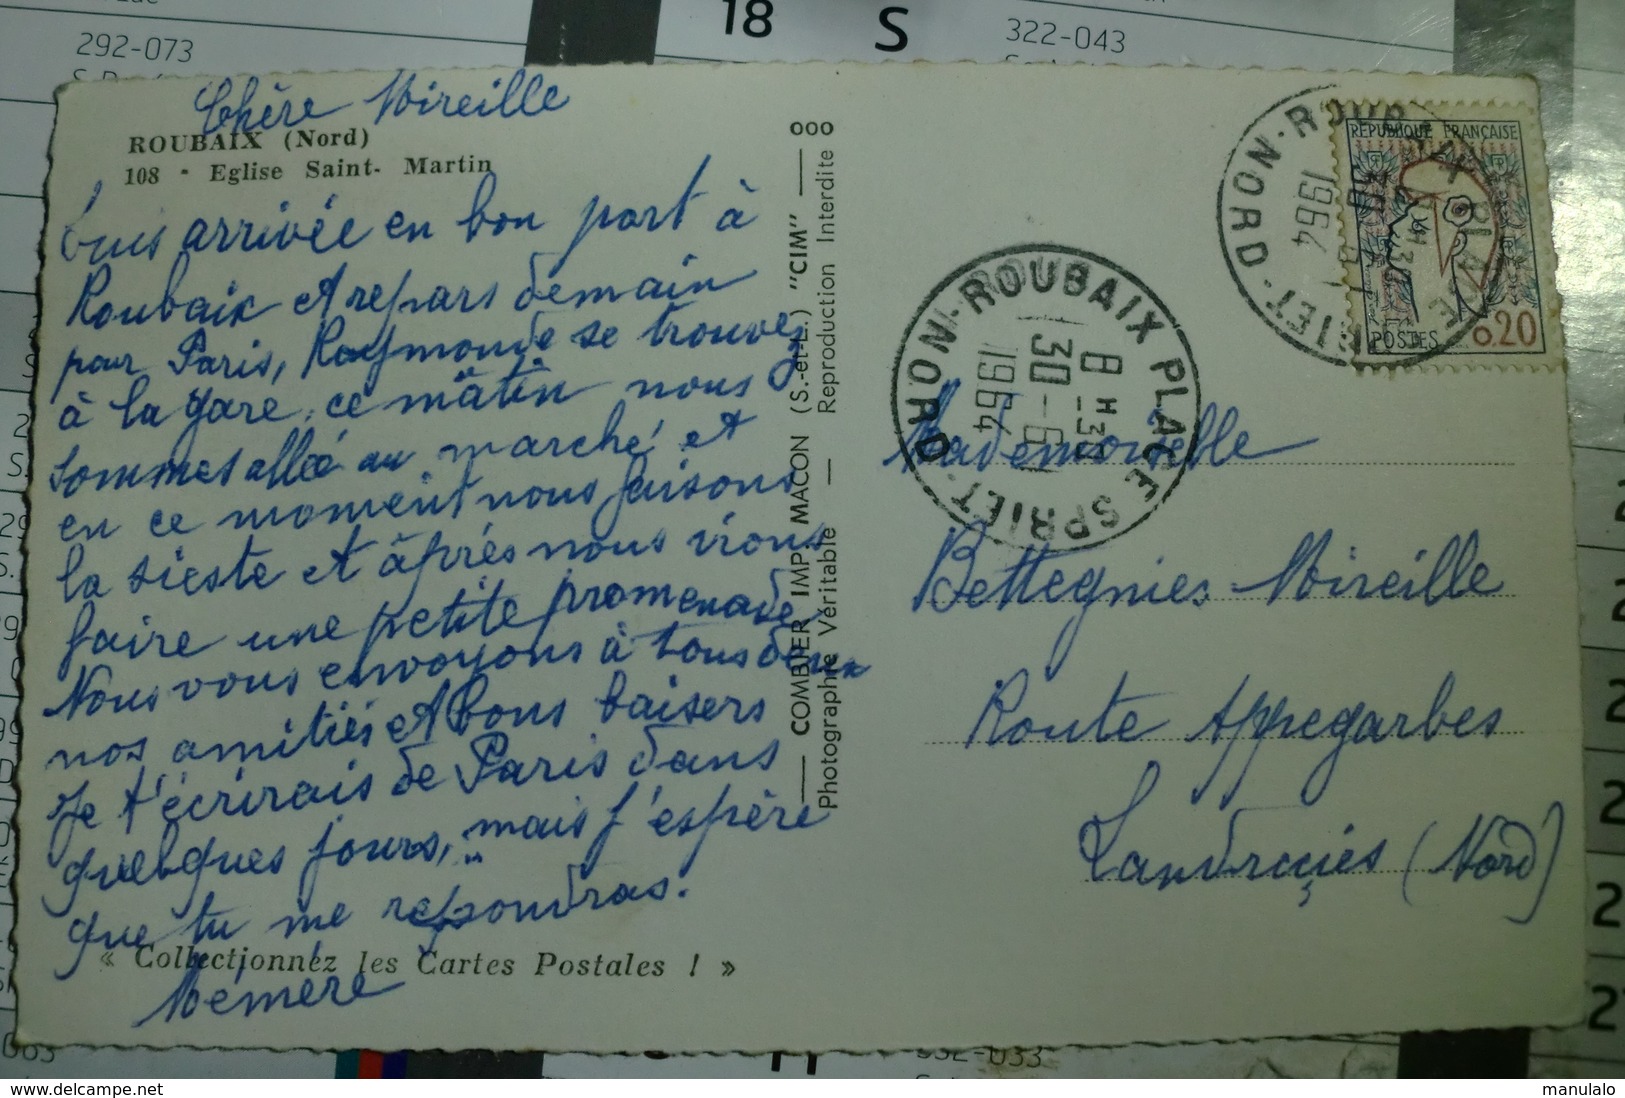 292-073
18
S
322-043
Chère Mireille
ROUBAIX (Nord)
108 - Eglise Saint- Martin
suis arrivée en bon port à
Roubaix et repars demain
pour Paris, Raymonde se trouvez
à la gare, ce mâtin nous
sommes allée au marché et
en ce moment nous faisons
la sieste et âprés nous irons
faire une petite promenade
Nous vous envoyons à tous deux
nos amitiés et bons baisers
Je t'écrirais de Paris dans
quelques jours, mais j'espère
que tu me repondras.
« Collectionnéz les Cartes Postales ! »
Mémére
COMBIER IMP. MACON (S.-et-L.) "CIM"
Photographe Véritable — Reproduction Interdite
ROUBAIX PLACE SPRIET
NORD
8 H 30
30-6
1964
REPUBLIQUE FRANÇAISE
POSTES
0,20
NORD - ROUBAIX PLACE SPRIET
1964
Mademoiselle
Bettegnies Mireille
Route Appegarbes
Landreçies (Nord)
032-033
www.delcampe.net
manulalo